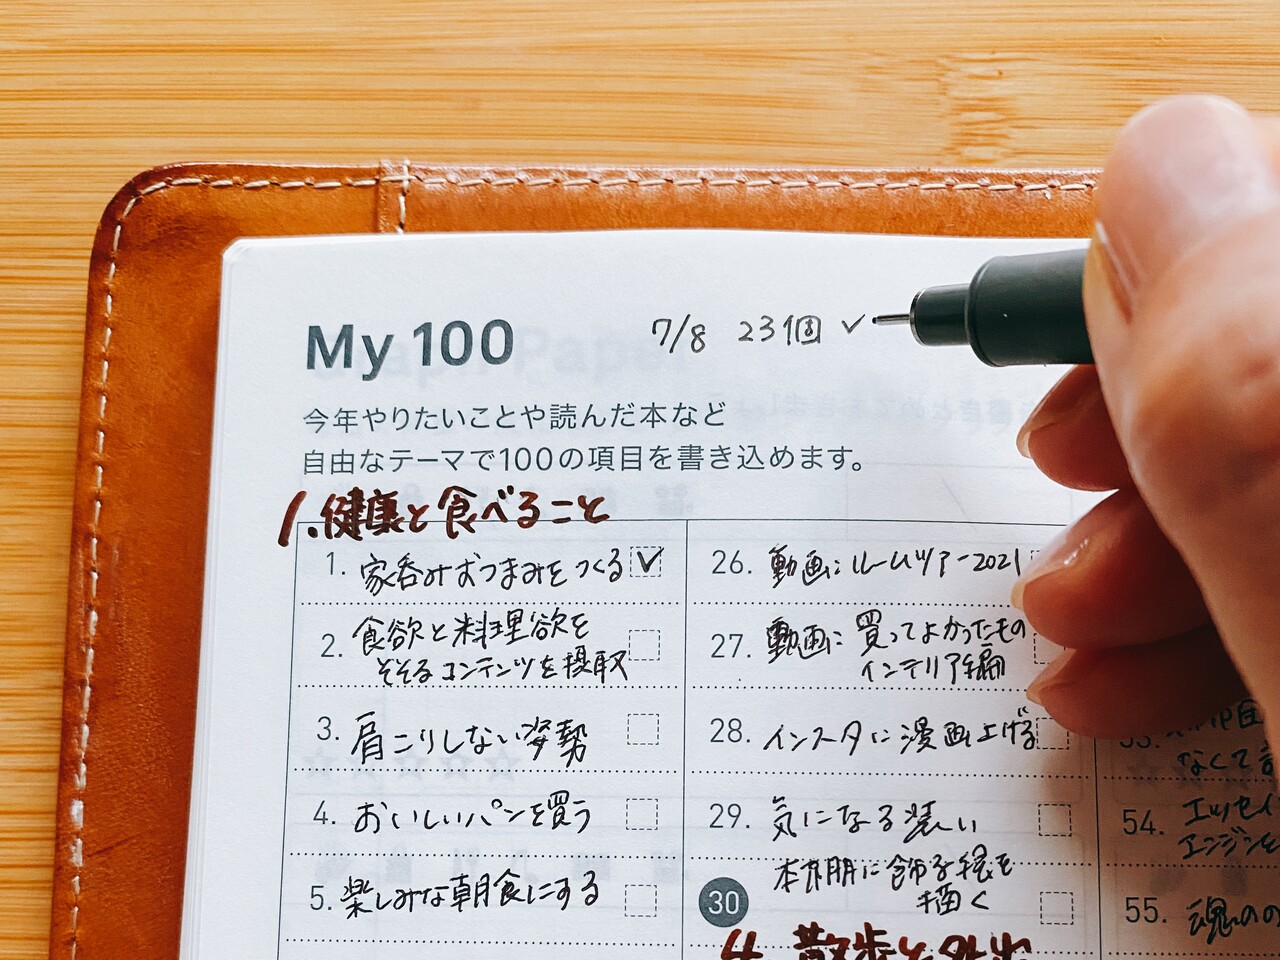 My 100
7/8 23個 ✓
今年やりたいことや読んだ本など
自由なテーマで100の項目を書き込めます。
1.健康と食べること
1. 家呑みおつまみをつくる ✓
2. 食欲と料理欲を
そそるコンテンツを摂取
3. 肩こりしない姿勢
4. おいしいパンを買う
5. 楽しみな朝食にする
26. 動画:ルームツアー2021
27. 動画:買ってよかったもの
インテリア編
28. インスタに漫画上げる
29. 気になる装い
30 本棚に飾る絵を
描く
4.散歩と外出
53.
なくて
54. エッセイ
エンジンを
55. 魂のの